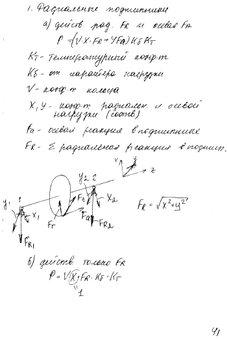 1. Радиальные подшипники
а) действ рад. FR и осевая FA
P = (VX·FR + YFA) Kб KT
KT - температурный коэф-т
Kб - от характера нагрузки
V - коэф-т кольца
X, Y - коэф-т радиальн. и осевой
нагрузки (соотв)
Fa - осевая реакция в подшипнике
FR - Σ радиальная реакция в подшип.
y x z
y1 x1 FR1 Fr Fa y2 x2 FR2
FR = √x²+y²
б) действ только FR
P = VX·FR·Kб·KT
1
41